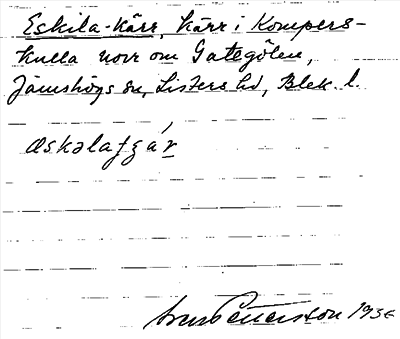 Eskila-kärr, kärr i Kompers-
kulla norr om Gategölen,
Jämshögs sn, Listers hd, Blek. l.
æskəlaʃɛár
Pettersson 1936